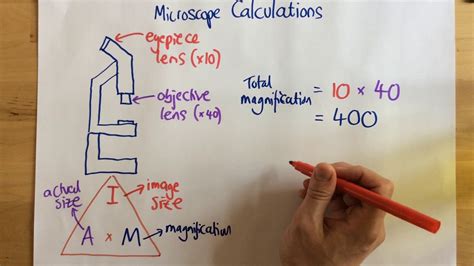 Microscope Calculations
eyepiece
lens (x10)
objective
lens (x40)
Total
magnification = 10 x 40
= 400
actual
size
I
image
size
A x M
magnification